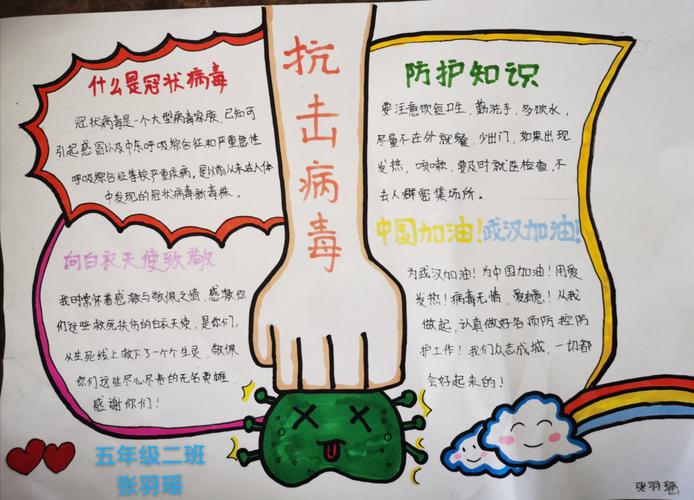 抗击病毒
什么是冠状病毒
冠状病毒是一个大型病毒家族,已知可
引起感冒以及中东呼吸综合征和严重急性
呼吸综合征等较严重疾病。是以前从未在人体
中发现的冠状病毒新毒株。
向白衣天使致敬
我时常怀着感激与敬佩之情,感激你
们这些救死扶伤的白衣天使,是你们,
从生死线上救下了一个个生灵,敬佩
你们这些尽心尽责的无名英雄,
感谢你们!
防护知识
要注意饮食卫生,勤洗手,多喝水,
尽量不在外就餐,少出门,如果出现
发热,咳嗽,要及时就医检查,不
去人群密集场所。
中国加油!武汉加油!
为武汉加油!为中国加油!用爱
发热!病毒无情,爱无意!从我
做起,认真做好各项防控防
护工作!我们众志成城,一切都
会好起来的!
五年级二班
张羽瑶
张羽瑶